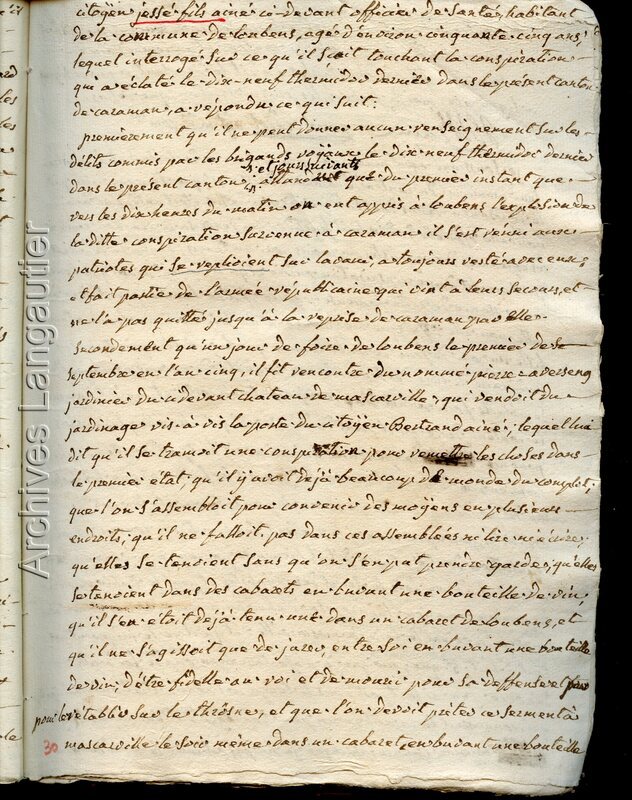 citoyen jessé fils ainé ci-devant officier de santé, habitant
de la commune de loubens, agé d'environ cinquante cinq ans,
lequel interrogé sur ce qu'il scait touchant la conspiration
qui a éclaté le dix neuf thermidor dernier dans le présent canton
de caraman, a répondu ce qui suit:
premierement qu'il ne peut donner aucun renseignement sur les
délits commis par les brigands royaux le dix neuf thermidor dernier
et jours suivants
dans le présent canton, attandu que du premier instant que
vers les dix heures du matin on ent appris à loubens l'explosion de
la ditte conspiration survenue à caraman il s'est réuni aux
patriotes qui se replioient sur lavaur, a toujours resté avec eux
et fait partie de l'armée republicaine qui vint à leurs secours, et
ne l'a pas quitté jusqu'à la reprise de caraman par elle
secondement qu'un jour de foire de loubens le premier de
septembre en l'an cinq, il fit rencontre du nommé pierre averseng
jardinier du cidevant chateau de mascarville, qui vendoit du
jardinage vis à vis la porte du citoyen Bertrand ainé, lequel lui
dit qu'il se tramoit une conspiration pour remettre les choses dans
le premier état, qu'il y avoit déjà beaucoup de monde du complot,
que l'on s'assembloit pour convenir des moyens en plusieurs
endroits, qu'il ne falloit pas dans ces assemblées ni lire ni écrire,
qu'elles se tenoient sans qu'on s'en pat prendre garde, qu'elles
se tenoient dans des cabarets en buvant une bouteille de vin,
qu'il s'en étoit déjà tenu une dans un cabaret de loubens, et
qu'il ne s'agissoit que de jurer entre soi en buvant une bouteille
de vin, d'être fidelle au roi et de mourir pour sa deffense et
pour le rétablir sur le thrône, et que l'on devoit prêter ce serment à
mascarville le soir même dans un cabaret en buvant une bouteille
30
Archives Langautier